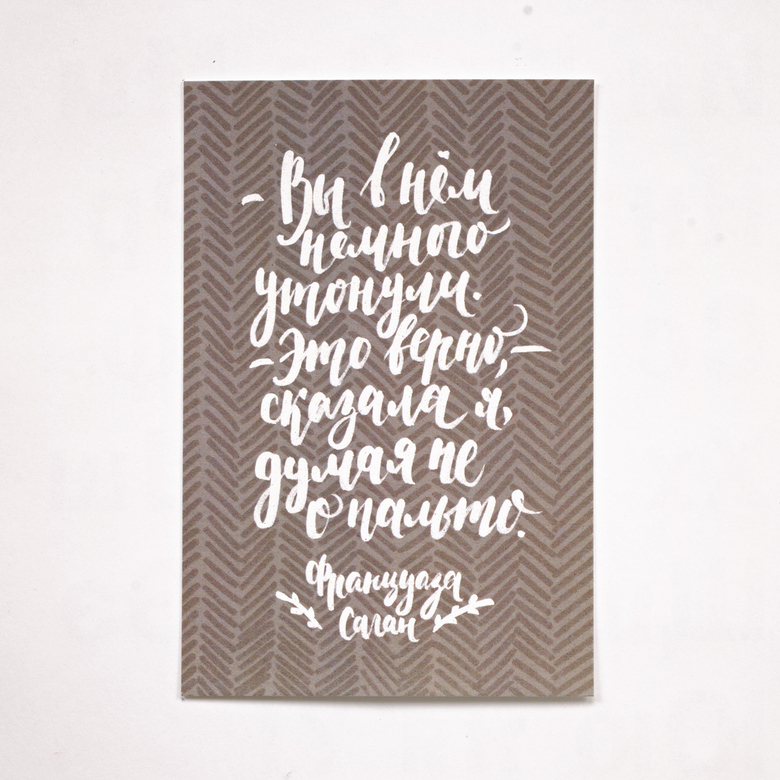 - Вы в нём
немного
утонули.
- Это верно, -
сказала я,
думая не
о пальто.
Франсуаза
Саган